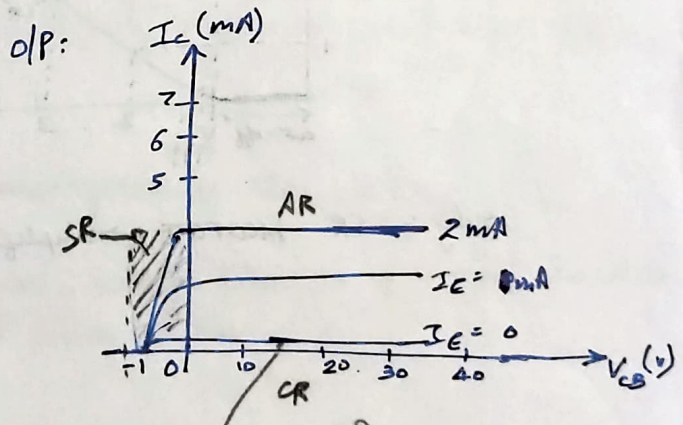 O/P:
Ic (mA)
7
6
5
AR
SR
2 mA
IE = mA
IE = 0
-1 0 10 20 30 40 VCB (V)
CR